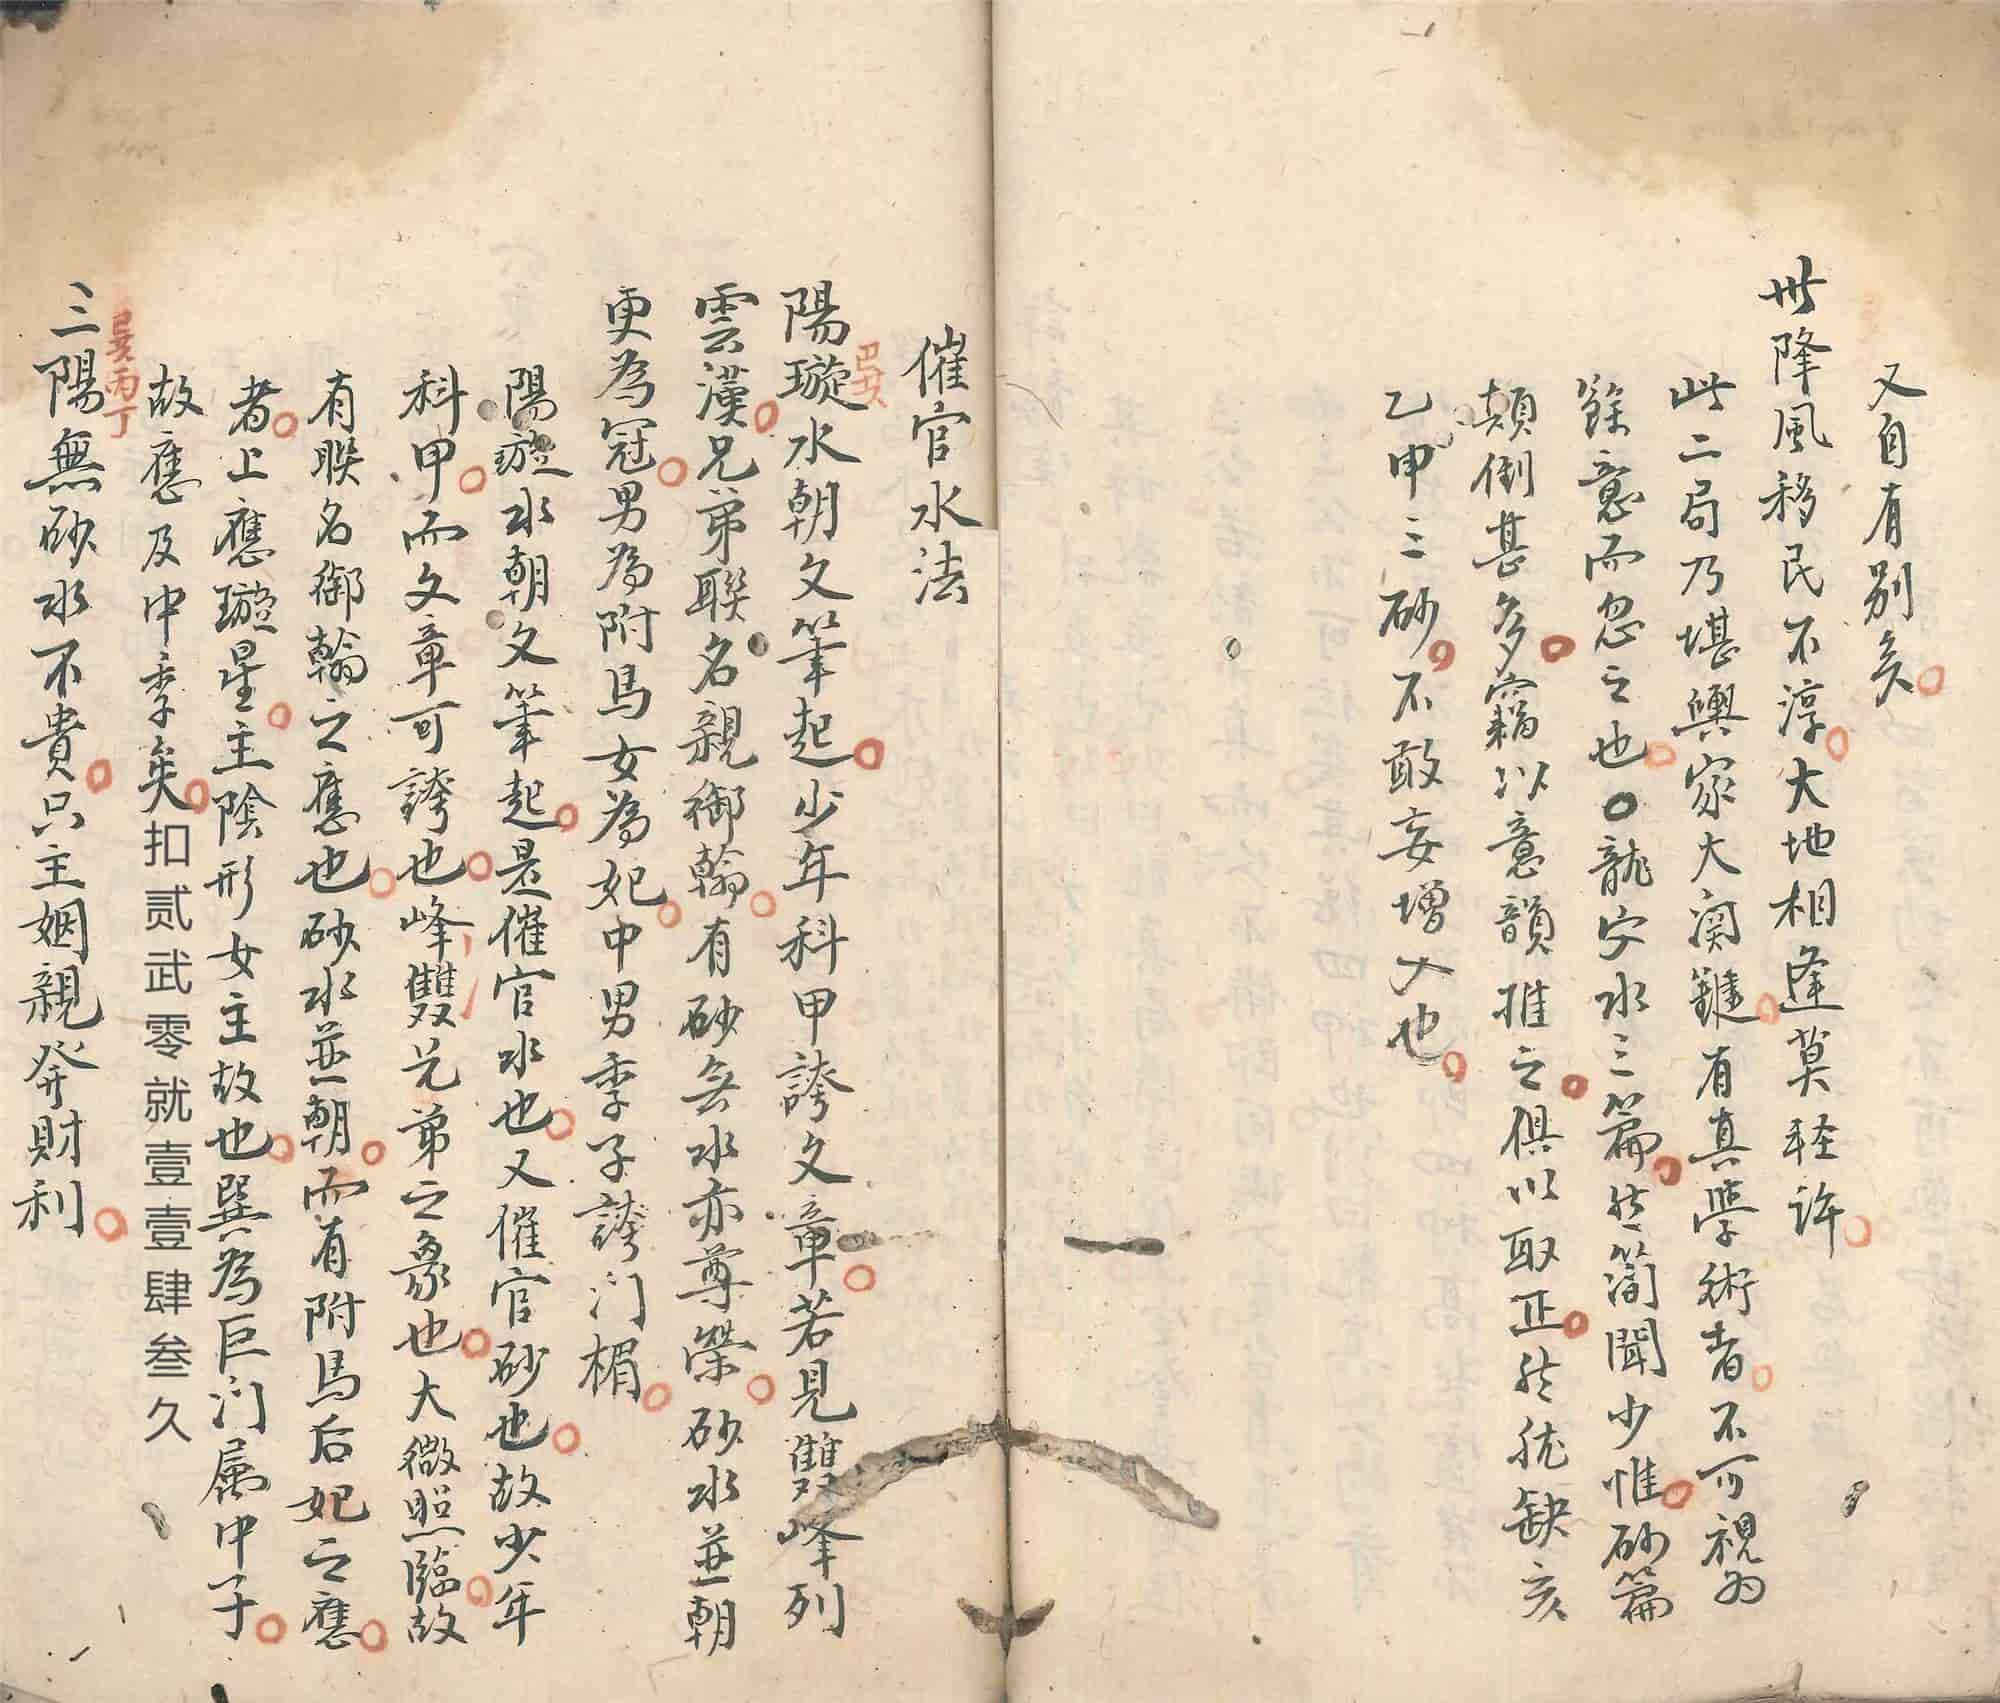 又自有别矣
世降風移民不淳大地相逢莫轻许
此二局乃堪輿家大関鍵有真學術者不可視為
餘意而忽之也○龍穴水三篇然简闻少惟砂篇
顛倒甚多竊以意韻推之俱以取正然犹缺亥
乙甲三砂不敢妄增入也
催官水法
巳亥
陽璇水朝文筆起少年科甲誇文章若見雙峰列
雲漢兄弟聯名親御翰有砂無水亦尊榮砂水並朝
更為冠男為附馬女為妃中男季子誇门楣
陽璇水朝文筆起是催官水也又催官砂也故少年
科甲而文章可誇也峰雙兄弟之象也大微照臨故
有聨名御翰之應也砂水並朝而有附馬后妃之應
者上應璇星主陰形女主故也巽為巨门属中子
故應及中季矣
扣贰武零就壹壹肆叁久
巽丙丁
三陽無砂水不貴只主姻親発財利